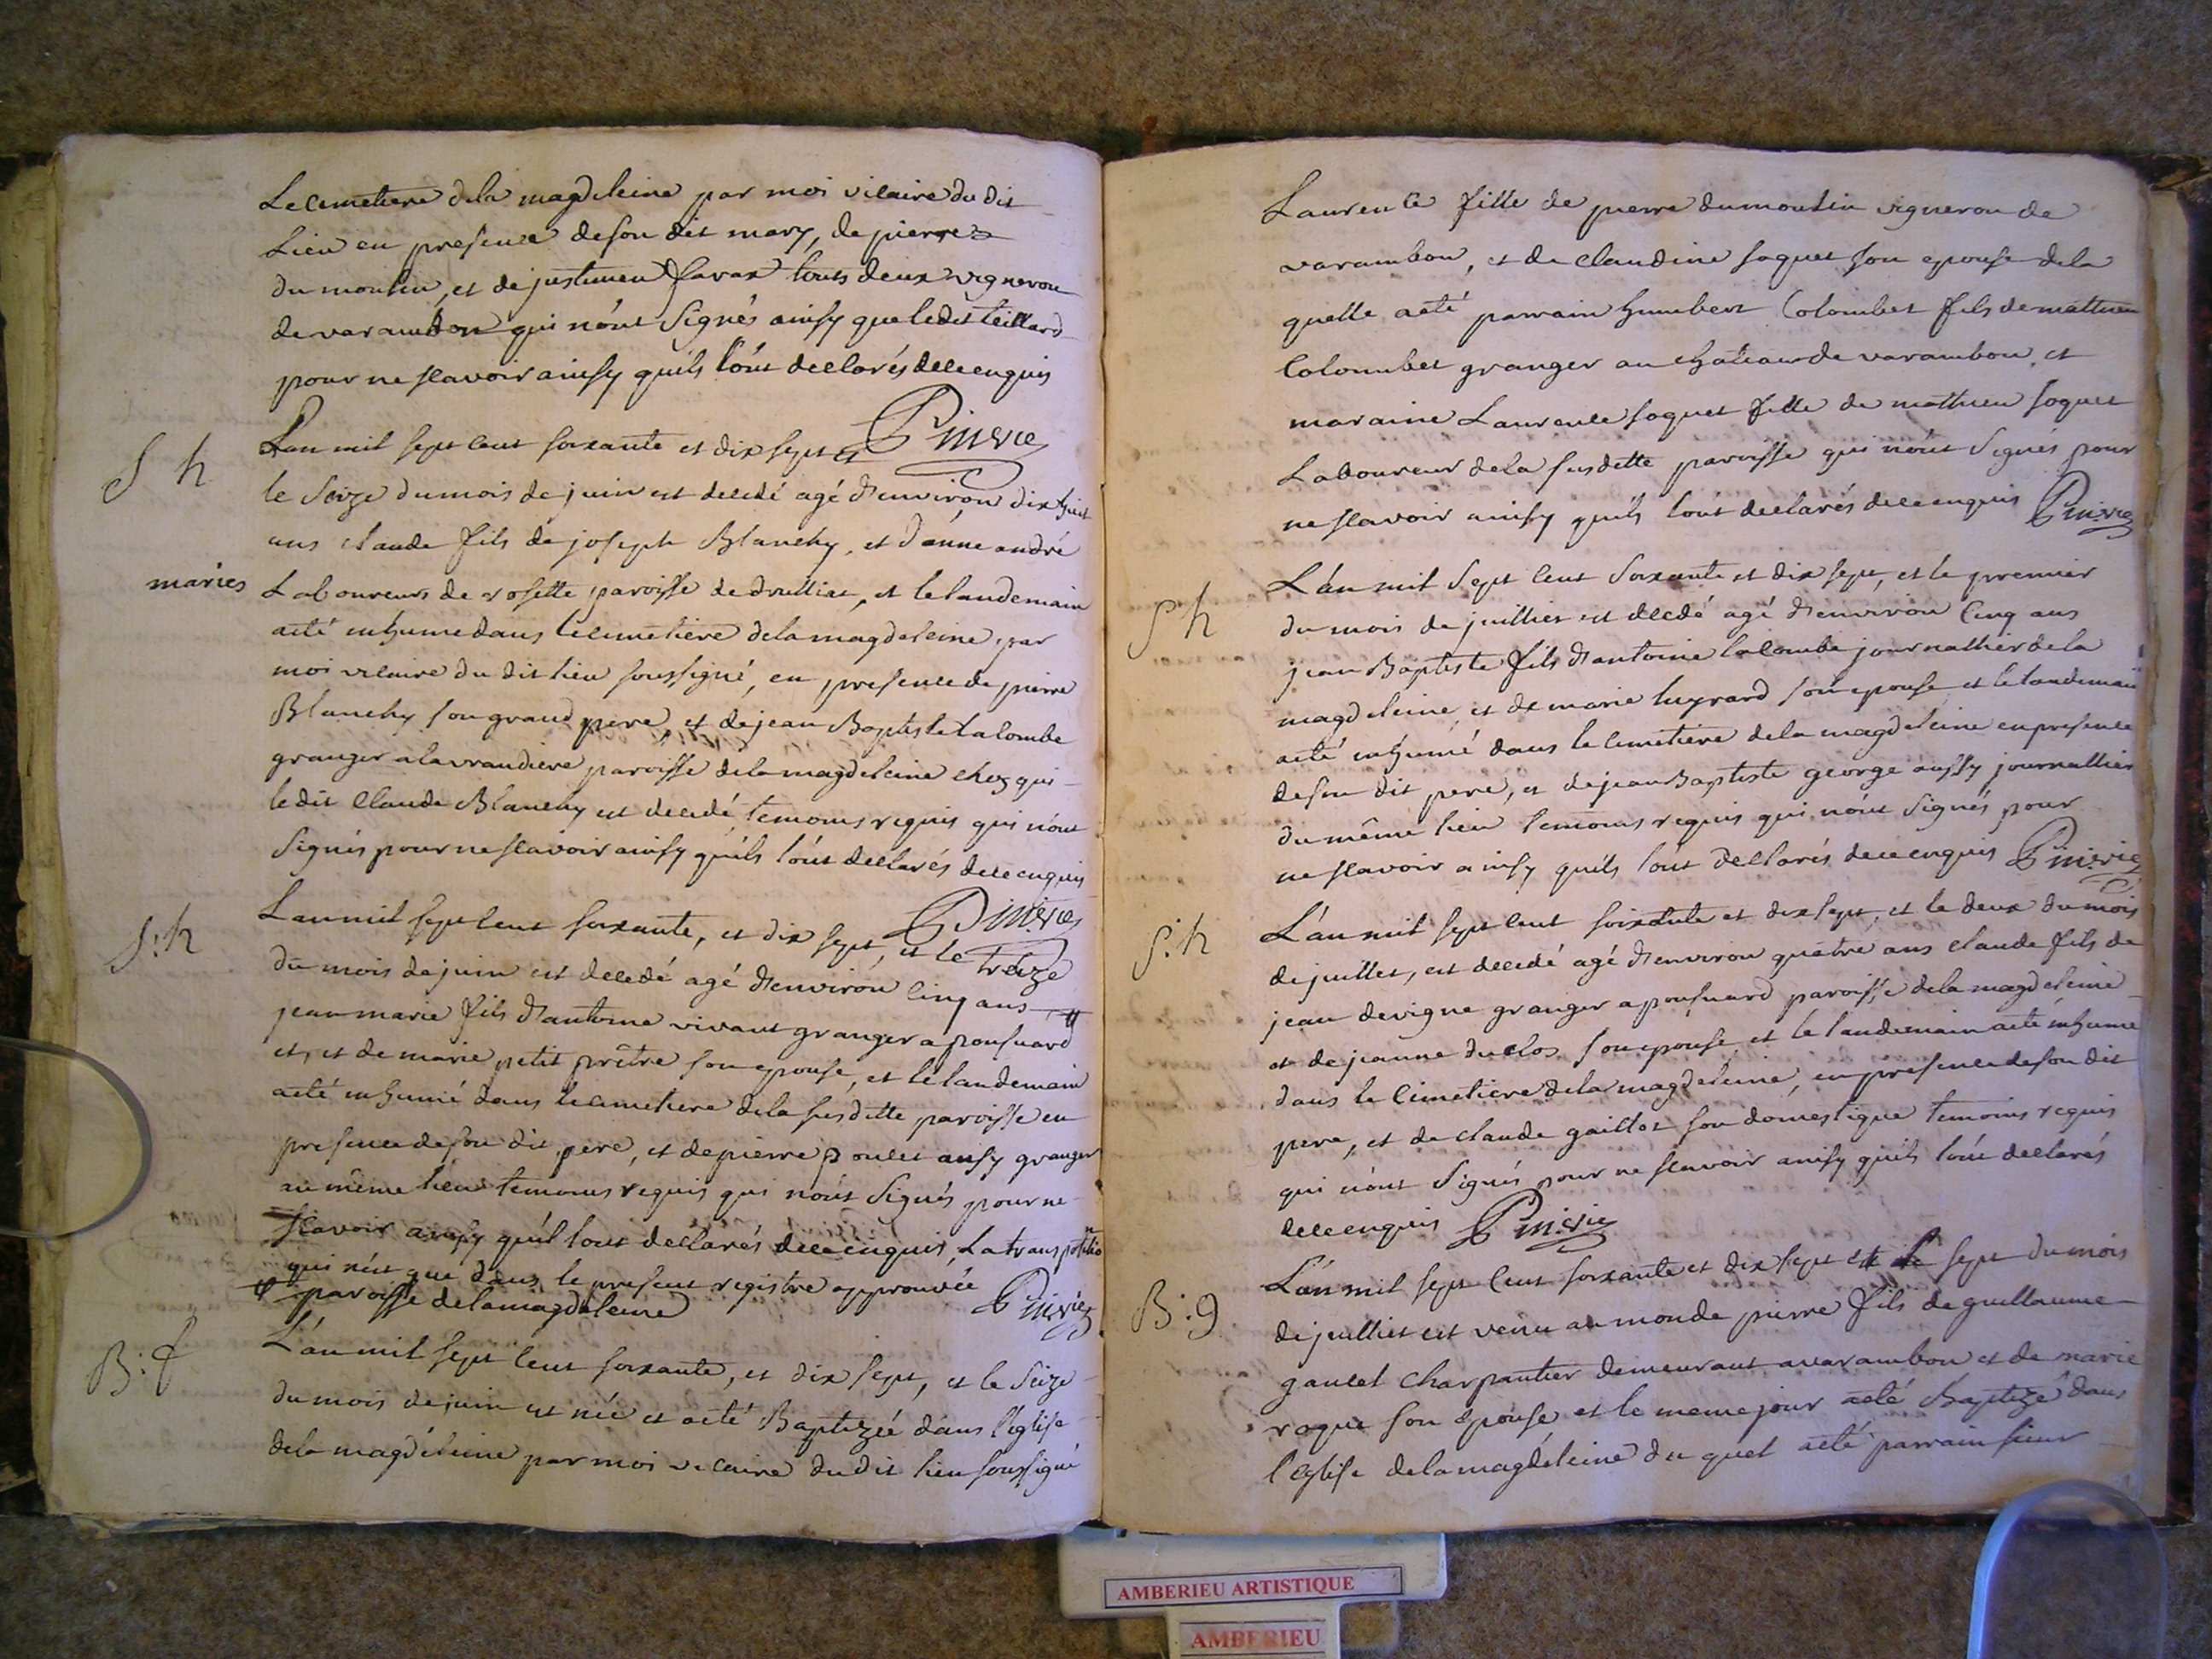 Le cimetiere dela magdeleine par moi vicaire du dit
Lieu en presence de son dit mary, de pierre
du moulin, et de justinien favax touts deux vigneron
de varambon qui n'ont Signés ainsy que ledit teillard
pour ne scavoir ainsy quils l'ont declarés de ce enquis
S h
L'an mil sept cent soixante et dix sept et Piniere
le Seize du mois de juin est decedé agé d'environ dix huit
ans claude fils de joseph Blanchy, et d'anne andré
maries
Laboureurs de rosette paroisse de druilliat, et le landemain
a eté inhume dans le cimetiere dela magdeleine, par
moi vicaire du dit lieu soussigné, en presence de pierre
Blanchy son grand pere, et de jean Baptiste Lalombe
granger a lavrandiere paroisse dela magdeleine chez qui
le dit Claude Blanchy est decedé, temoins requis qui n'ont
Signés pour ne scavoir ainsy quils l'ont declarés de ce enquis
Piniere
S:h
L'an mil sept cent soixante, et dix sept, et le treize
du mois de juin est decedé agé d'environ cinq ans
jean marie fils d'antoine vivant granger a ponsuard
et, et de marie petit prêtre son epouse, et le landemain
a eté inhumé dans le cimetiere dela susditte paroisse en
presence de son dit pere, et de pierre poulet aussy granger
au même lieu temoins requis qui n'ont Signés pour ne
scavoir ainsy quil l'ont declarés de ce enquis,
qui n'est que dans le present registre approuvée
paroisse de la magdeleine Piniere
B:f
L'an mil sept cent soixante, et dix sept, et le Seize
du mois de juin est née et a eté Baptizée dans l'église
dela magdeleine par moi vicaire du dit lieu soussigné
Laurence fille de pierre dumoulin vigneron de
varambon, et de claudine soquet son epouse dela
quelle a eté parrain humbert Colombet fils de mathieu
Colombet granger au chateau de varambon, et
maraine Laurence soquet fille de mathieu soquet
Laboureur dela susditte paroisse qui n'ont Signés pour
ne scavoir ainsy quils l'ont declarés de ce enquis Piniere
S h
L'an mil Sept cent Soixante et dix sept, et le premier
du mois de juilliet est decedé agé d'environ Cinq ans
jean Baptiste fils d'antoine lalombe journallier dela
magdeleine, et de marie son epouse et le landemain
a eté inhumé dans le cimetiere dela magdeleine en presence
de son dit pere, et de jean Baptiste george aussy journallier
du même lieu temoins requis qui n'ont Signés pour
ne scavoir ainsy quils l'ont declarés de ce enquis Piniere
S:h
L'an mil sept cent soixante et dix sept, et le deux du mois
de juillet, est decedé agé d'environ quatre ans claude fils de
jean devigne granger a ponsuard paroisse dela magdeleine
et de jeanne duclos son epouse et le landemain a eté inhume
dans le Cimetiere dela magdeleine, en presence de son dit
pere, et de claude gaillot son domestique temoins requis
qui n'ont Signés pour ne scavoir ainsy quils l'ont declarés
de ce enquis Piniere
B:g
L'an mil sept cent soixante et dix sept et le sept du mois
de juilliet est venu au monde pierre fils de guillaume
gaulet charpantier demeurant a varambon et de marie
roque son epouse et le meme jour a eté Baptizé dans
l'eglise dela magdeleine du quel a eté parrain sieur
AMBERIEU ARTISTIQUE
AMBERIEU